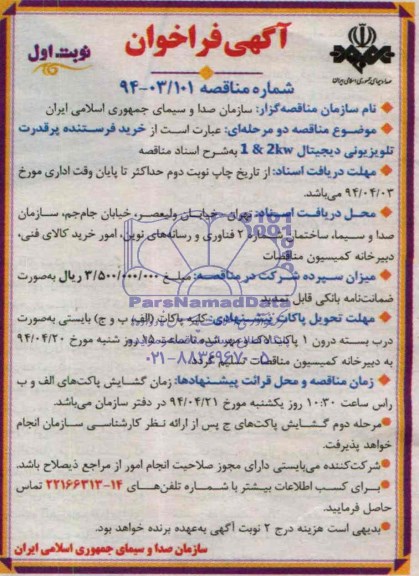 آگهی فراخوان
نوبت اول
شماره مناقصه ۹۴-۰۳/۱۰۱
نام سازمان مناقصه‌گزار: سازمان صدا و سیمای جمهوری اسلامی ایران
موضوع مناقصه دو مرحله‌ای: عبارت است از خرید فرستنده پرقدرت
تلویزیونی دیجیتال 1 & 2kw به‌شرح اسناد مناقصه
مهلت دریافت اسناد: از تاریخ چاپ نوبت دوم حداکثر تا پایان وقت اداری مورخ
۹۴/۰۴/۰۳ می‌باشد.
محل دریافت اسناد: تهران خیابان ولیعصر، خیابان جام‌جم، سازمان
صدا و سیما، ساختمان شماره ۲ فناوری و رسانه‌های نوین، امور خرید کالای فنی،
دبیرخانه کمیسیون مناقصات
میزان سپرده شرکت در مناقصه: مبلغ ۳/۵۰۰/۰۰۰/۰۰۰ ریال به‌صورت
ضمانت‌نامه بانکی قابل
ParsNamadData
مهلت تحویل پاکات پیشنهادی: کلیه پاکات (الف، ب و ج) بایستی به‌صورت
درب بسته درون ۱ پاکت لاک و مهر شده تا ساعت ۱۵ روز شنبه مورخ ۹۴/۰۴/۲۰
به دبیرخانه کمیسیون مناقصات تسلیم گردد.
۰۲۱-۸۸۳۴۹۶۷۰-۵
زمان مناقصه و محل قرائت پیشنهادها: زمان گشایش پاکت‌های الف و ب
راس ساعت ۱۰:۳۰ روز یکشنبه مورخ ۹۴/۰۴/۲۱ در دفتر سازمان می‌باشد.
مرحله دوم گشایش پاکت‌های ج پس از ارائه نظر کارشناسی سازمان انجام
خواهد پذیرفت.
شرکت‌کننده می‌بایستی دارای مجوز صلاحیت انجام امور از مراجع ذیصلاح باشد.
برای کسب اطلاعات بیشتر با شماره تلفن‌های ۱۴-۲۲۱۶۶۳۱۳ تماس
حاصل فرمایید.
بدیهی است هزینه درج ۲ نوبت آگهی به‌عهده برنده خواهد بود.
سازمان صدا و سیمای جمهوری اسلامی ایران